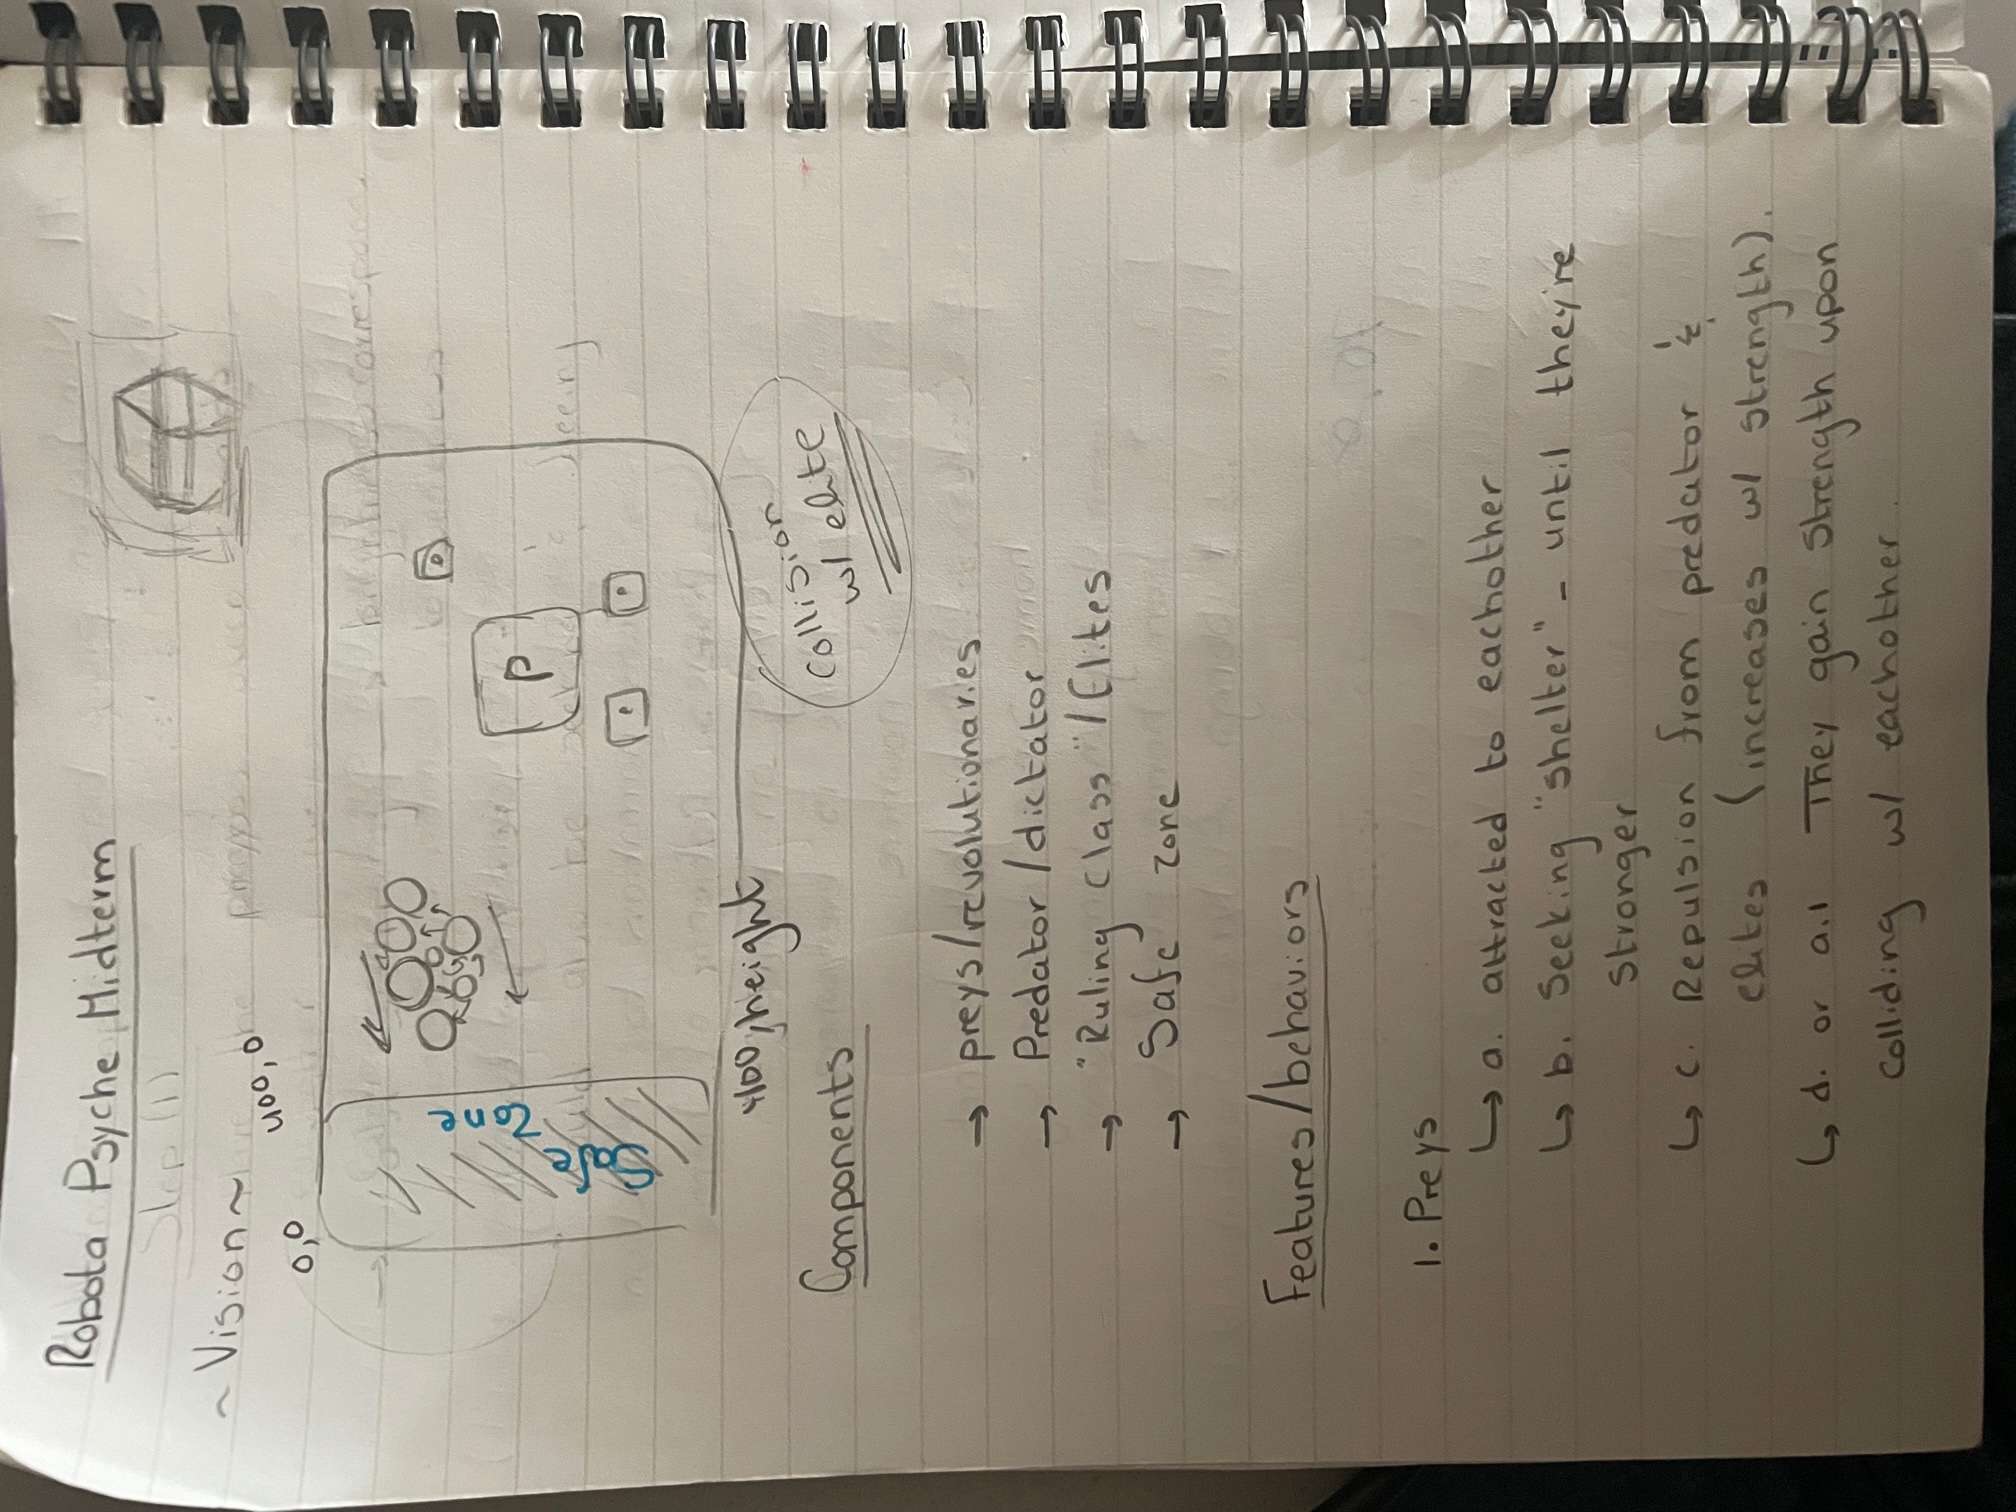 Robota Psyche Midterm
Step (1)
~ Vision ~
0,0
400,0
Safe zone
P
P
P
P
400, height
Collision
w/ elite
Components
→ preys/revolutionaries
→ Predator/dictator
→ "Ruling Class"/Elites
→ Safe zone
Features/behaviors
1. Preys
↳ a. attracted to eachother
↳ b. Seeking "shelter" - until they're
stronger
↳ c. Repulsion from predator &
elites (increases w/ strength).
↳ d. or a.1 They gain strength upon
colliding w/ eachother.